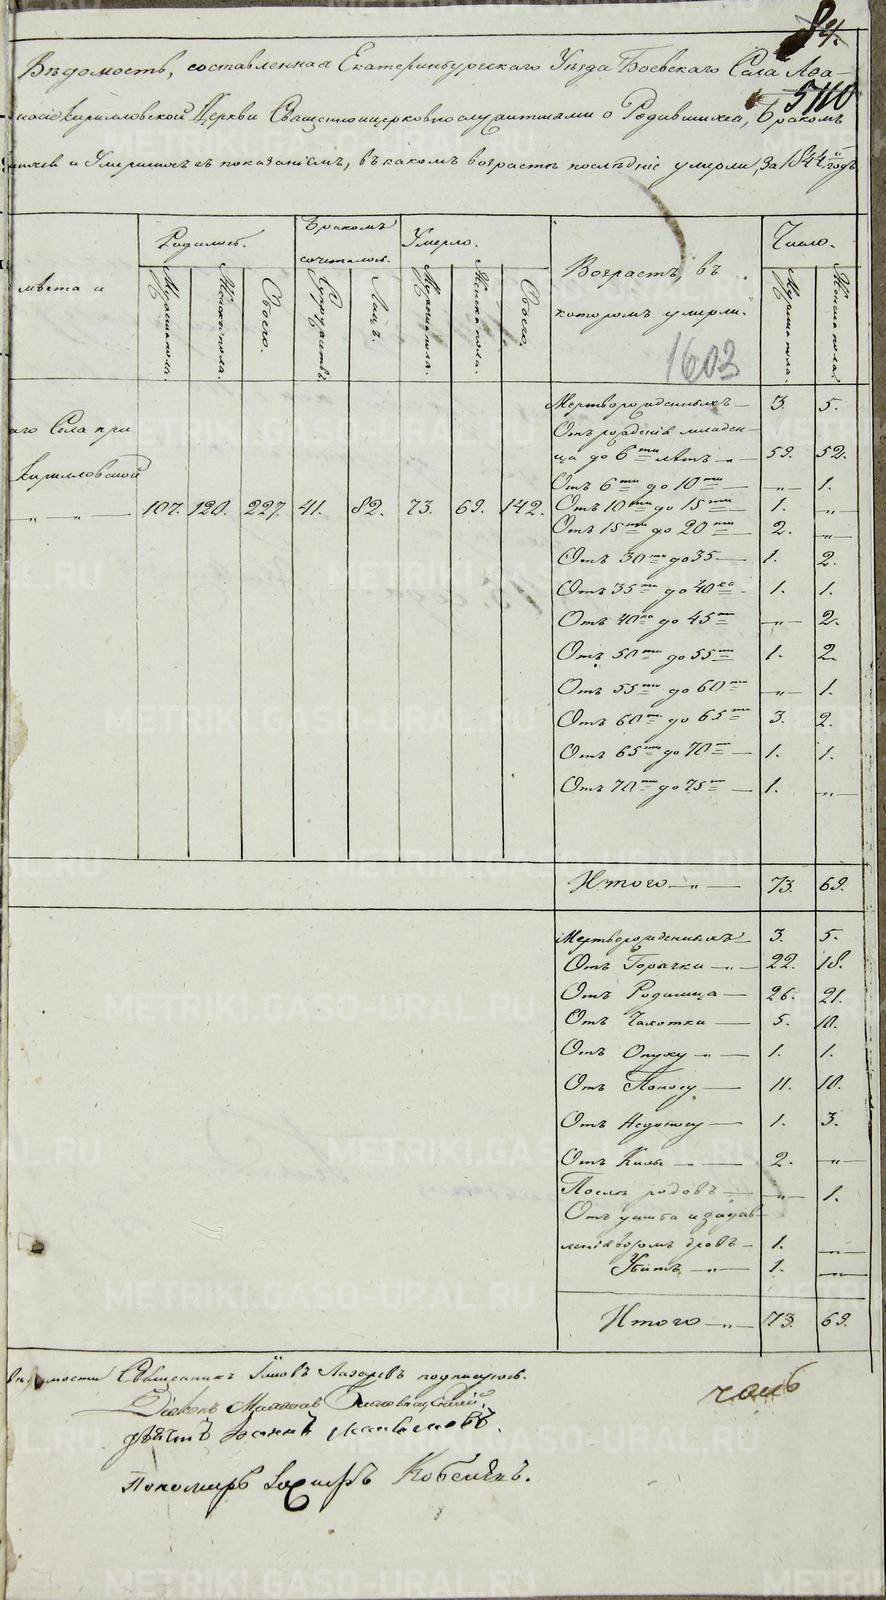 84.
5110
Вѣдомость, составленная Екатеринбургскаго Уѣзда Боевскаго Села Афа-
насіе Кирилловской Церкви Священноцерковнослужителями о Родившихся, Бракомъ
и Умершихъ съ показаніемъ, въ какомъ возрастѣ послѣдніе умерли, за 1844й годъ
Родилось.
Бракомъ сочеталось.
Умерло.
Возрастъ, въ которомъ умерли.
Число.
мѣста и
Мужеска пола.
Женска пола.
Обоего.
Супружествъ.
Лицъ.
Мужеска пола.
Женска пола.
Обоего.
Мужеска пола.
Женска пола.
1603
Мертворожденныхъ — 3. 5.
аго Села при
Отъ рожденія младен-
ца до 6ти лѣтъ „ — 59. 52.
Кирилловской
Отъ 6ти до 10ти — „ — 1.
„ „ — 107. 120. 227. 41. 82. 73. 69. 142.
Отъ 10ти до 15ти — 1. „
Отъ 15ти до 20ти — 2. „
Отъ 30ти до 35 — 1. 2.
Отъ 35ти до 40ка — 1. 1.
Отъ 40ка до 45ти — „ — 2.
Отъ 50ти до 55ти — 1. 2.
Отъ 55ти до 60ти — „ — 1.
Отъ 60ти до 65ти — 3. 2.
Отъ 65ти до 70ти — 1. 1.
Отъ 70ти до 75ти — 1. „
Итого — „ — 73. 69.
Мертворожденныхъ — 3. 5.
Отъ Горячки — „ — 22. 18.
Отъ Родимца — 26. 21.
Отъ Чахотки — 5. 10.
Отъ Опуху „ — 1. 1.
Отъ Поносу — 11. 10.
Отъ Недоносу — 1. 3.
Отъ Килы „ — 2. „
Послѣ родовъ — „ — 1.
Отъ ушиба и задав-
дровъ — 1. „
Убитъ — „ — 1. „
Итого — „ — 73. 69.
Священникъ Іаковъ Лазаревъ подписуюсь.
Діаконъ
Пономарь Кобелевъ.
METRIKI.GASO-URAL.RU